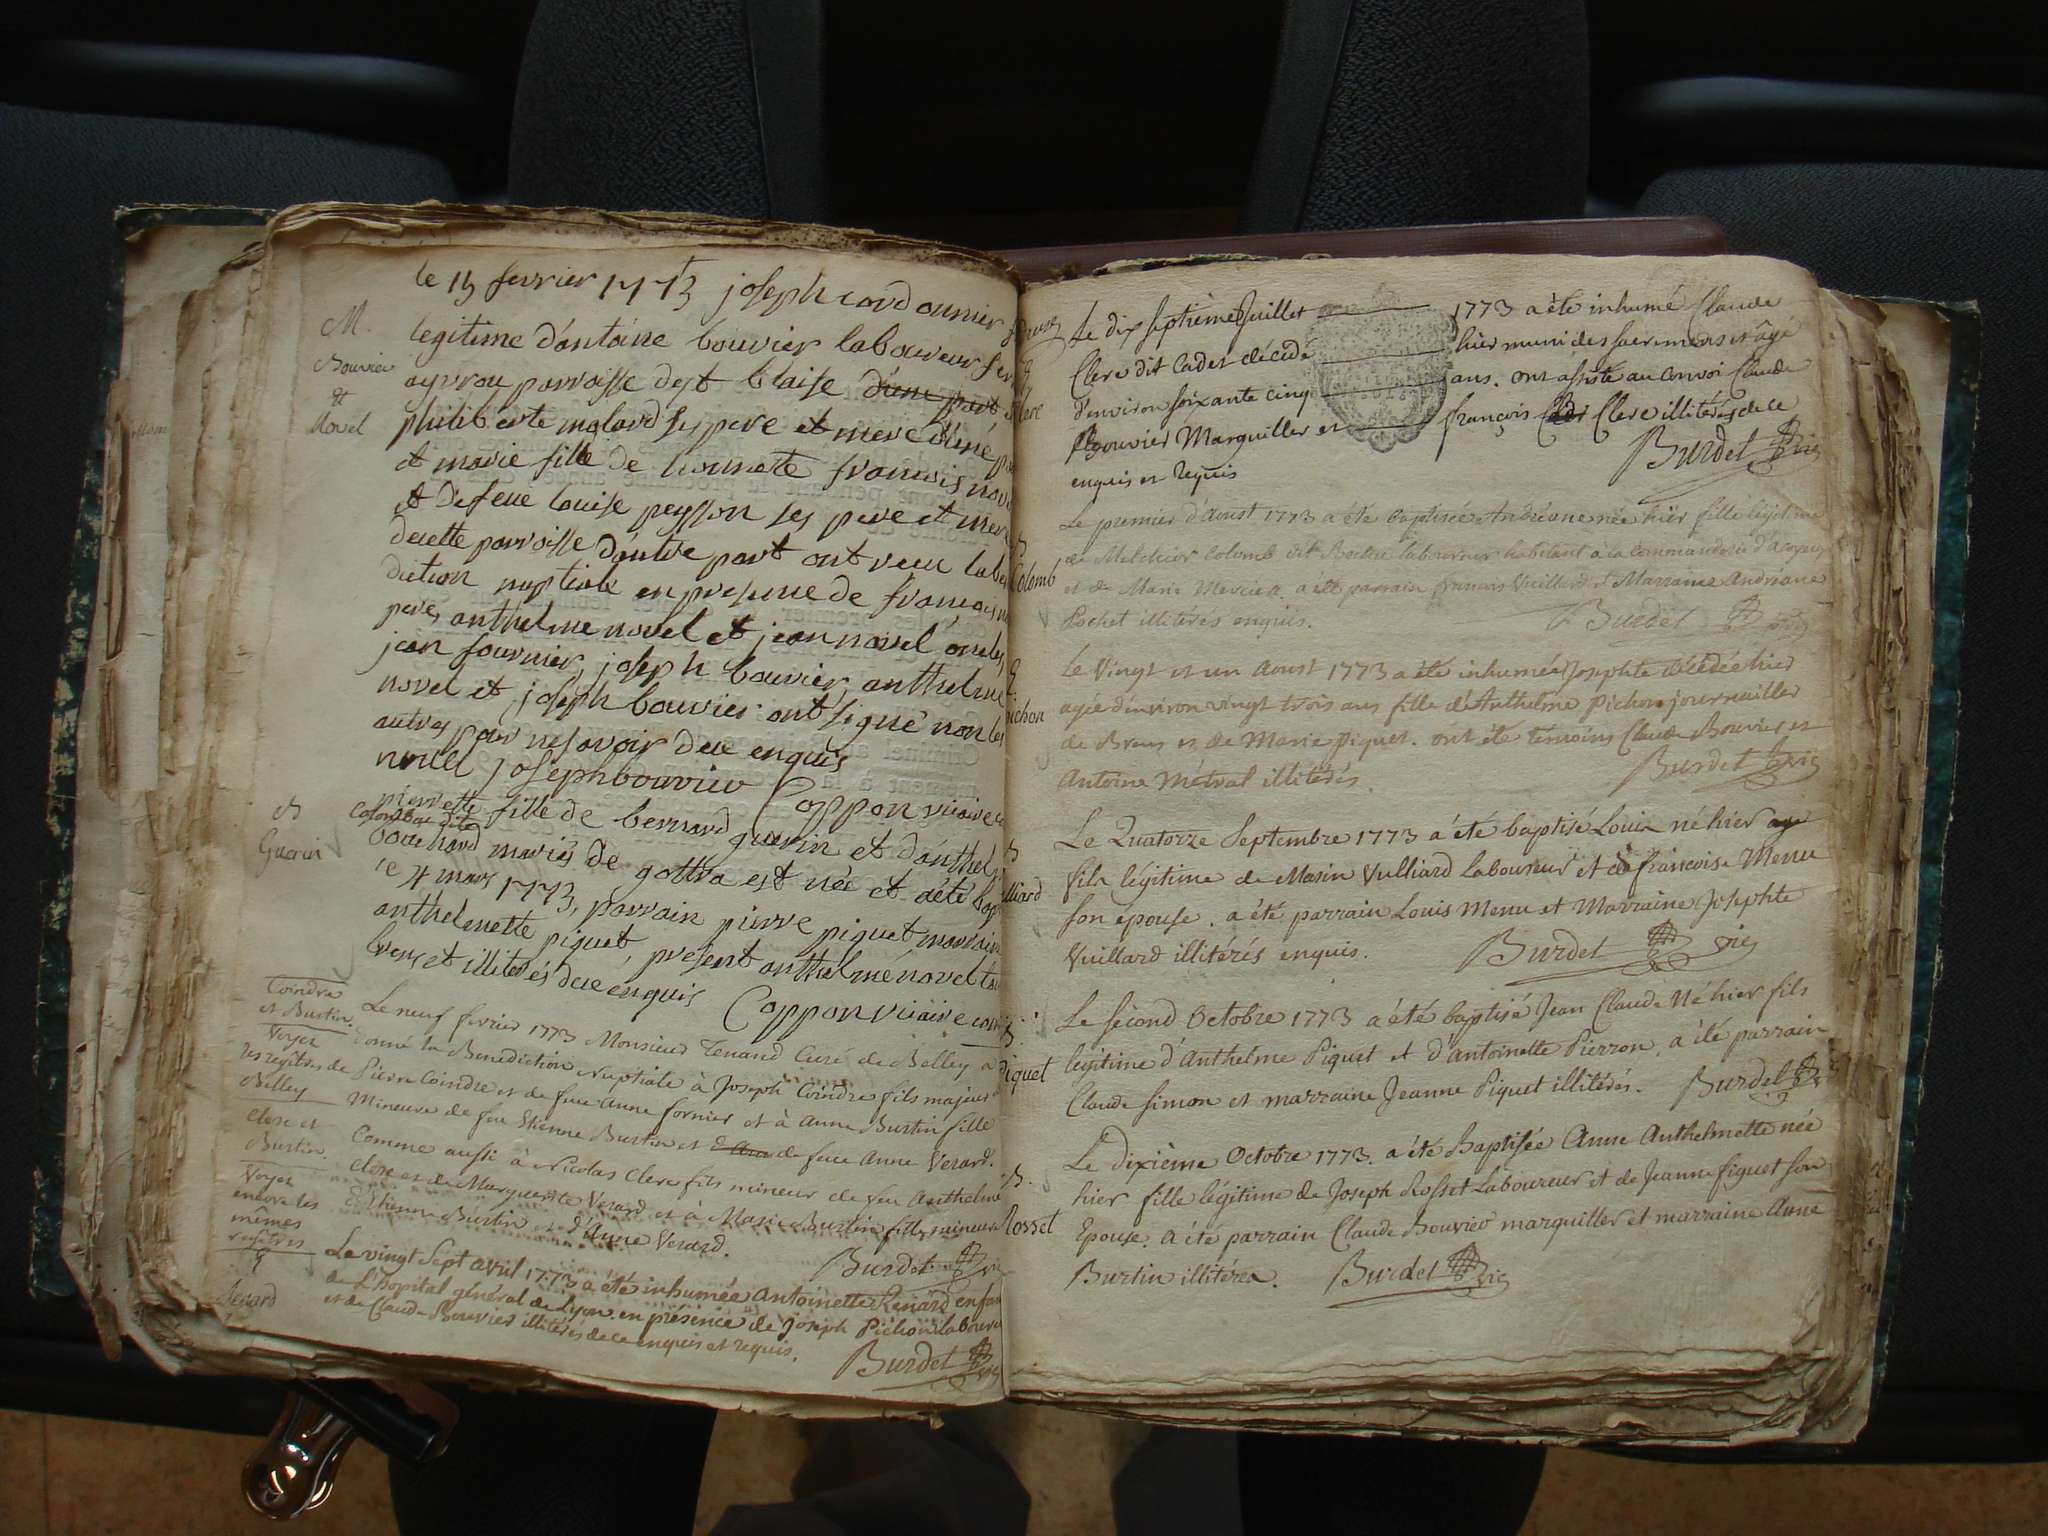 le 15 fevrier 1773 joseph cordonnier
legitime d'antoine bouvier laboureur
parroisse de st blaise d'une part
philiberte molard ses pere et mere d'une
et marie fille de honnete francois
et de feue louise peysson ses pere et mere
de cette parroisse d'autre part ont receu la be
diction nuptiale en presence de francois
pere, anthelme novel et jean novel oncles
jean fournier, joseph bouvier, anthelme
novel et joseph bouvier ont signé non les
autres pour ne sçavoir de ce enquis
novel joseph bouvier Coppon vicaire
M.
Bouvier
et
Novel
pierrette fille de bernard guerin et d'anthel
colombe dite
bouchard mariés de est née et a été bap
le 4 mars 1773, parrain pierre piquet marraine
anthelmette piquet, present anthelme novel
et illiterés de ce enquis Coppon vicaire
B
Guerin
Le neuf fevrier 1773 Monsieur Tenand Curé de Belley a
donné la Benediction Nuptiale à Joseph Coindre fils majeur
de Pierre Coindre et de feue Anne fornier et à Anne Burtin fille
Mineure de feu Etienne Burtin et de feue Anne Verard.
Comme aussi à Nicolas Clerc fils mineur de feu Anthelme
Clerc et de Marguerite Verard et à Marie Burtin fille mineure
Etienne Burtin et d'Anne Verard.
Burdet vic
Coindre
et Burtin.
Voyez
les regitres de
Belley
Clerc et
Burtin
Voyez
encore les
mêmes
regitres
Le vingt Sept avril 1773 a été inhumée Antoinette Renard enfan
de l'hopital général de Lyon en presence de Joseph Pichon laboure
et de Claude Bouvier illitérés de ce enquis et requis.
Burdet vic
Renard
Le dix septième Juillet 1773 a été inhumé Claude
Clerc dit Cadet décédé hier muni des sacremens et âgé
d'environ soixante cinq ans. ont assisté au convoi Claude
Bouvier Marguiller et françois Clerc illitérés de ce
enquis et requis
Burdet vic
Clerc
Le premier d'Aoust 1773 a été baptisée Andréane née hier fille légitime
de Melchior Colomb dit laboureur habitant à la commanderie d'acoyeux
et de Marie Mercier. a été parrain françois Vuillard et Marraine Andréane
Pochet illitérés enquis.
Burdet vic
B
Colomb
Le Vingt et un Aoust 1773 a été inhumée Josephte décédée hier
agée d'environ vingt trois ans fille d'Anthelme Pichon journailler
de Brens et de Marie Piquet. ont été témoins Claude Bouvier et
Antoine Métral illitérés.
Burdet vic
Pichon
Le Quatorze Septembre 1773 a été baptisé Louis né hier
fils légitime de Masin Vulliard laboureur et de francoise Menu
son epouse. a été parrain Louis Menu et Marraine Josephte
Vuillard illitérés enquis.
Burdet vic
B
lliard
Le Second Octobre 1773 a été baptisé Jean Claude Né hier fils
legitime d'Anthelme Piquet et d'Antoinette Pierron. a été parrain
Claude Simon et marraine Jeanne Piquet illitérés. Burdet
B
Piquet
Le Dixieme Octobre 1773. a été Baptisée Anne Anthelmette née
hier fille légitime de Joseph Rosset Laboureur et de Jeanne figuet son
Epouse. a été parrain Claude Bouvier marguiller et marraine Anne
Burtin illitérés. Burdet vic
B.
Rosset